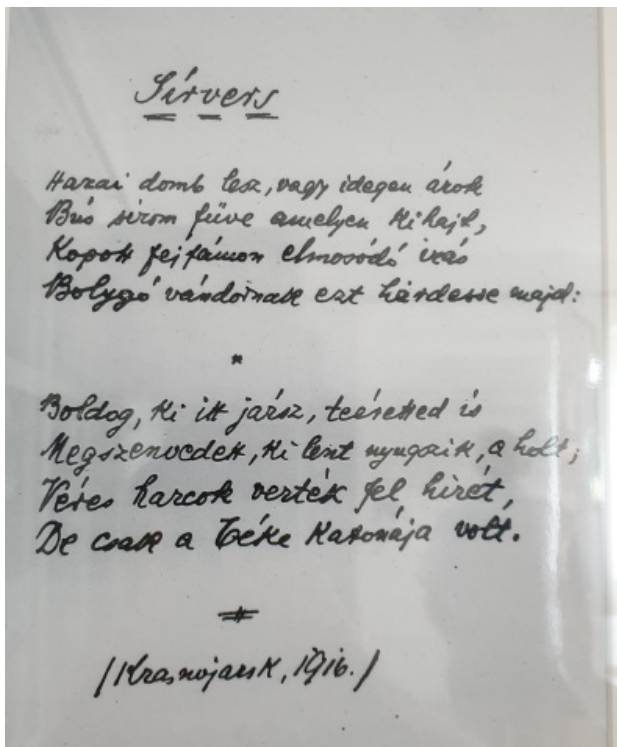 Sírvers
Hazai domb lesz, vagy idegen árok
Bús sirom füve amelyen kihajt,
Kopott fejfámon elmosódó irás
Bolygó vándornak ezt hirdesse majd:
*
Boldog, ki itt jársz, teéretted is
Megszenvedett, ki lent nyugszik, a holt;
Véres harcok verték fel hirét,
De csak a Béke Katonája volt.
/Krasnojarsk, 1916./